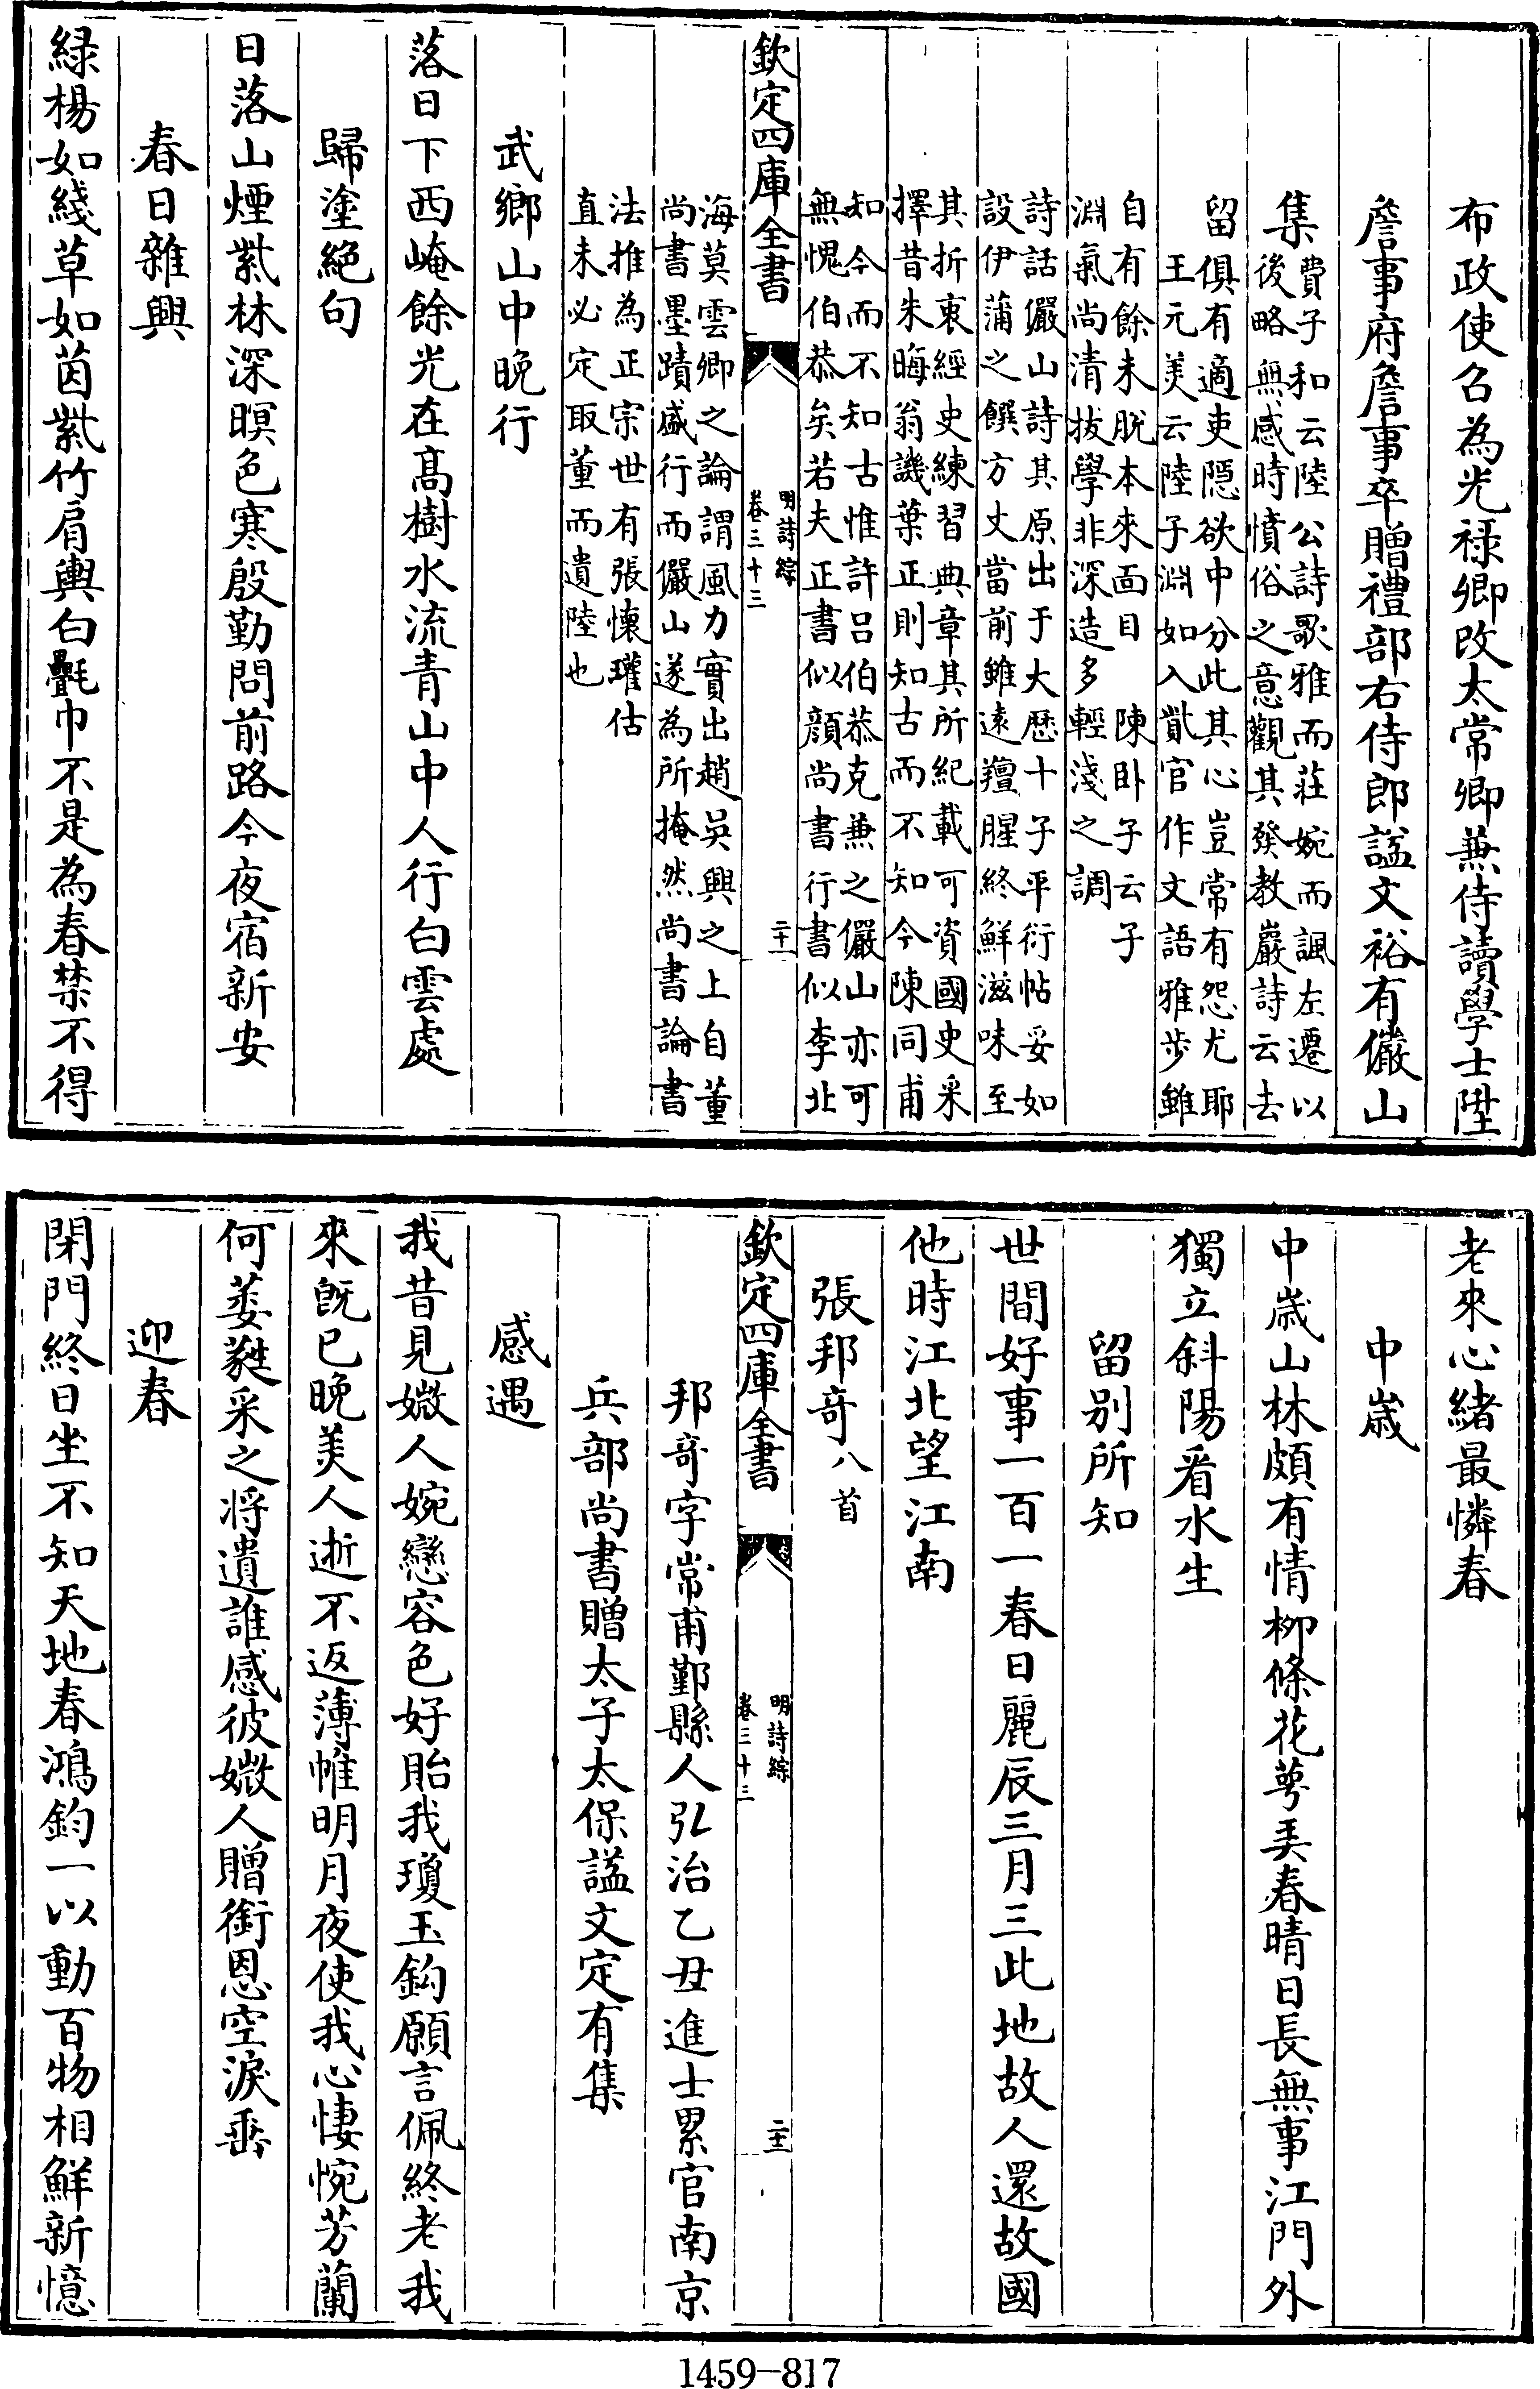 布政使召為光禄卿改太常卿兼侍讀學士陞
詹事府詹事卒贈禮部右侍郎諡文裕有儼山
集
費子和云陸公詩歌雅而莊婉而諷左遷以
後略無感時憤俗之意觀其發教巖詩云去
留俱有適吏隠欲中分此其心豈常有怨尤耶
王元美云陸子淵如入貲官作文語雅步雖
自有餘未脱本來面目 陳卧子云子
淵氣尚清拔學非深造多輕淺之調
詩話儼山詩其原出于大歴十子平衍帖妥如
設伊蒲之饌方丈當前雖逺羶腥終鮮滋味至
其折衷經史練習典章其所紀載可資國史采
擇昔朱晦翁譏葉正則知古而不知今陳同甫
知今而不知古惟許吕伯恭克兼之儼山亦可
無愧伯恭矣若夫正書似顔尚書行書似李北
欽定四庫全書
明詩綜
卷三十三
二十一
海莫雲卿之論謂風力實出趙吳興之上自董
尚書墨蹟盛行而儼山遂為所掩然尚書論書
法推為正宗世有張懷瓘估
直未必定取董而遺陸也
武鄉山中晚行
落日下西崦餘光在髙樹水流青山中人行白雲處
歸塗絶句
日落山煙紫林深暝色寒殷勤問前路今夜宿新安
春日雜興
緑楊如綫草如茵紫竹肩輿白㲲巾不是為春禁不得
老來心緒最憐春
中歳
中歳山林頗有情栁條花萼弄春晴日長無事江門外
獨立斜陽看水生
留别所知
世間好事一百一春日麗辰三月三此地故人還故國
他時江北望江南
張邦奇八首
欽定四庫全書
明詩綜
卷三十三
二十二
邦奇字常甫鄞縣人弘治乙丑進士累官南京
兵部尚書贈太子太保諡文定有集
感遇
我昔見媺人婉戀容色好貽我瓊玉鈎願言佩終老我
來旣已晚美人逝不返薄帷明月夜使我心悽惋芳蘭
何萎蕤采之将遺誰感彼媺人贈銜恩空淚垂
迎春
閉門終日坐不知天地春鴻鈞一以動百物相鮮新憶
1459-817